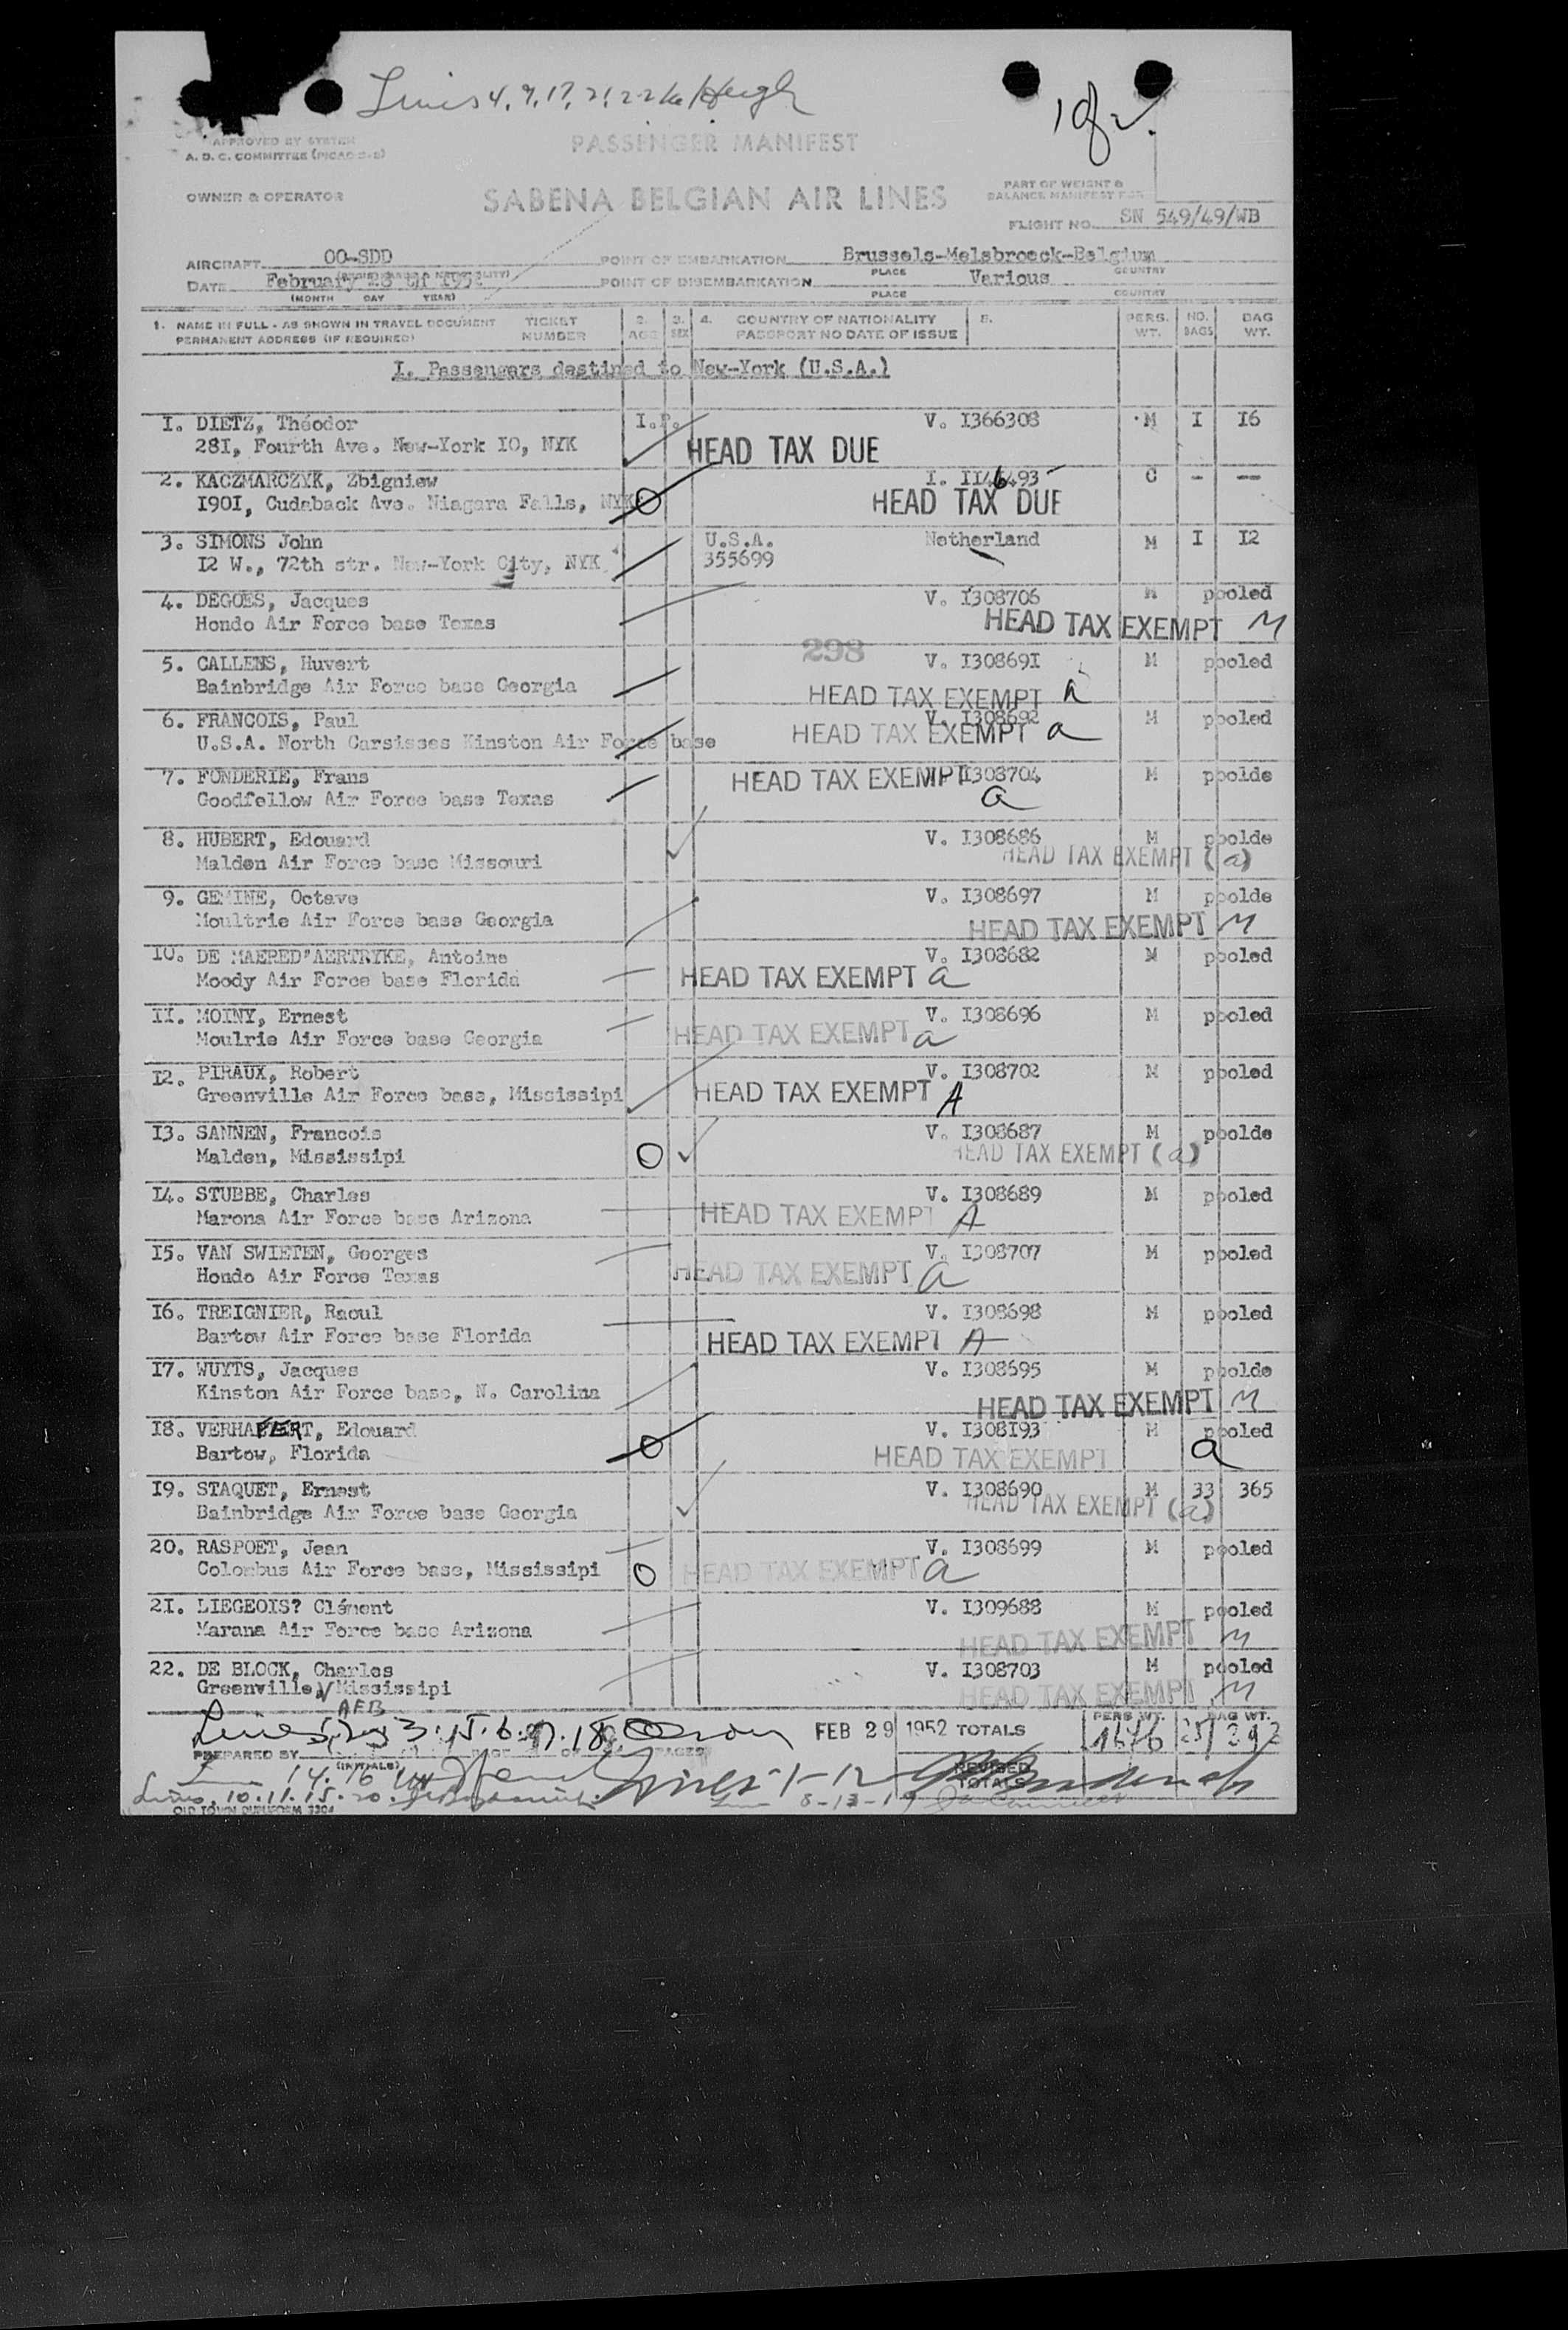 Lines 4, 9, 17, 21, 22
1 of 2.
APPROVED BY SYSTEM
A. D. C. COMMITTEE
PASSENGER MANIFEST
OWNER & OPERATOR
SABENA BELGIAN AIR LINES
PART OF WEIGHT &
BALANCE MANIFEST FOR
FLIGHT NO. SN 549/49/WB
AIRCRAFT OO-SDD POINT OF EMBARKATION Brussels-Melsbroeck-Belgium
PLACE COUNTRY
DATE February 28 th 1952 POINT OF DISEMBARKATION Various
(MONTH DAY YEAR) PLACE COUNTRY
1. NAME IN FULL - AS SHOWN IN TRAVEL DOCUMENT TICKET 2. 3. 4. COUNTRY OF NATIONALITY 5. PERS. NO. BAG
PERMANENT ADDRESS (IF REQUIRED) NUMBER AGE SEX PASSPORT NO DATE OF ISSUE WT. BAGS WT.
I. Passengers destined to New-York (U.S.A.)
I. DIETZ, Théodor I.P. V. I366308 M I I6
28I, Fourth Ave. New-York IO, NYK HEAD TAX DUE
2. KACZMARCZYK, Zbigniew I. II46493 C - --
I90I, Cudaback Ave. Niagara Falls, NYK O HEAD TAX DUE
3. SIMONS John U.S.A. Netherland M I I2
I2 W., 72th str. New-York City, NYK 355699
4. DEGOES, Jacques V. I308706 M pooled
Hondo Air Force base Texas HEAD TAX EXEMPT M
298
5. CALLENS, Huvert V. I30869I M pooled
Bainbridge Air Force base Georgia HEAD TAX EXEMPT a
6. FRANCOIS, Paul V. I308692 M pooled
U.S.A. North Carsisses Kinston Air Force base HEAD TAX EXEMPT a
7. FONDERIE, Frans HEAD TAX EXEMPT I308704 M poolde
Goodfellow Air Force base Texas a
8. HUBERT, Edouard V. I308686 M poolde
Malden Air Force base Missouri HEAD TAX EXEMPT (a)
9. GEMINE, Octave V. I308697 M poolde
Moultrie Air Force base Georgia HEAD TAX EXEMPT M
I0. DE MAERED'AERTRYKE, Antoine V. I308682 M pooled
Moody Air Force base Florida HEAD TAX EXEMPT a
II. MOINY, Ernest V. I308696 M pooled
Moulrie Air Force base Georgia HEAD TAX EXEMPT a
I2. PIRAUX, Robert V. I308702 M pooled
Greenville Air Force base, Mississipi HEAD TAX EXEMPT A
I3. SANNEN, Francois V. I308687 M poolde
Malden, Mississipi O HEAD TAX EXEMPT (a)
I4. STUBBE, Charles V. I308689 M pooled
Marona Air Force base Arizona HEAD TAX EXEMPT A
I5. VAN SWIETEN, Georges V. I308707 M pooled
Hondo Air Force Texas HEAD TAX EXEMPT a
I6. TREIGNIER, Raoul V. I308698 M pooled
Bartow Air Force base Florida HEAD TAX EXEMPT A
I7. WUYTS, Jacques V. I308695 M poolde
Kinston Air Force base, N. Carolina HEAD TAX EXEMPT M
I8. VERHAEERT, Edouard V. I308I93 M pooled
Bartow, Florida O HEAD TAX EXEMPT a
I9. STAQUET, Ernest V. I308690 M 33 365
Bainbridge Air Force base Georgia HEAD TAX EXEMPT (a)
20. RASPOET, Jean V. I308699 M pooled
Colombus Air Force base, Mississipi O HEAD TAX EXEMPT a
2I. LIEGEOIS? Clément V. I309688 M pooled
Marana Air Force base Arizona HEAD TAX EXEMPT M
22. DE BLOCK, Charles V. I308703 M pooled
Greenville, Mississipi HEAD TAX EXEMPT M
AFB
FEB 29 1952 TOTALS PERS WT. BAG WT.
PREPARED BY (INITIALS) PAGE OF PAGES
14. 16 REVISED
TOTALS
Lines. 10. 11. 15. 20.
OLD TOWN